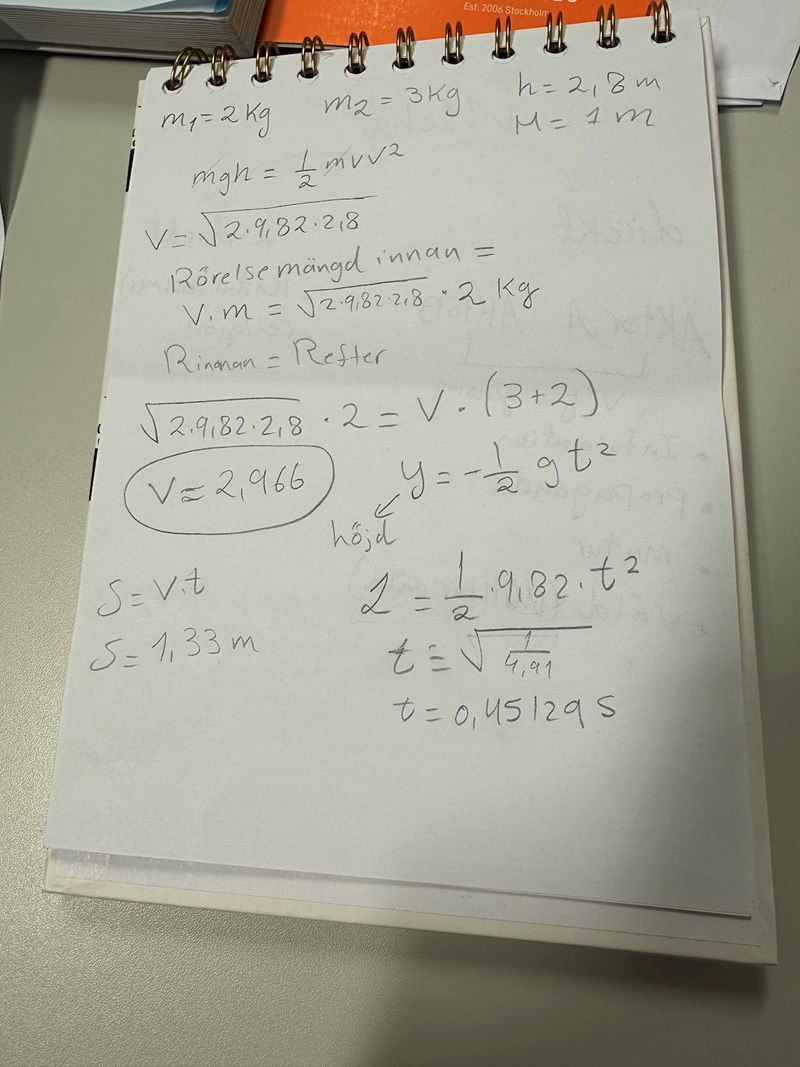 Est. 2006 Stockholm
m₁ = 2 Kg m₂ = 3 Kg h = 2,8 m
H = 1 m
mgh = 1/2 mvv²
V = √2·9,82·2,8
Rörelsemängd innan =
V·m = √2·9,82·2,8 · 2 Kg
Rinnan = Refter
√2·9,82·2,8 · 2 = V · (3+2)
V = 2,966
y = -1/2 gt²
höjd
1 = 1/2 · 9,82 · t²
t = √1/4,91
t = 0,45129 s
S = V·t
S = 1,33 m